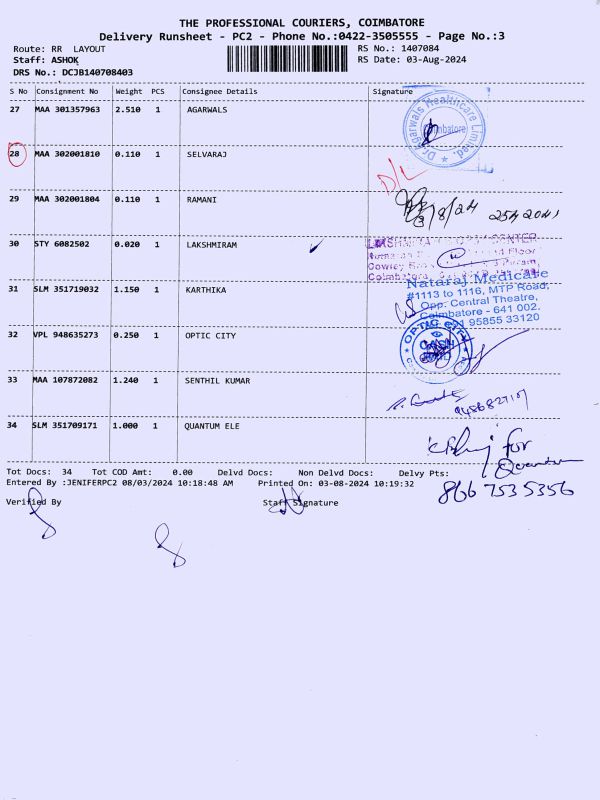 THE PROFESSIONAL COURIERS, COIMBATORE
Delivery Runsheet - PC2 - Phone No.:0422-3505555 - Page No.:3
Route: RR LAYOUT
Staff: ASHOK
DRS No.: DCJB140708403
RS No.: 1407084
RS Date: 03-Aug-2024
S No Consignment No Weight PCS Consignee Details Signature
27 MAA 301357963 2.510 1 AGARWALS
Dr. Agarwals Healthcare Limited
Coimbatore
28 MAA 302001810 0.110 1 SELVARAJ
D/L
29 MAA 302001804 0.110 1 RAMANI
3/8/24
30 STY 6082502 0.020 1 LAKSHMIRAM
31 SLM 351719032 1.150 1 KARTHIKA
Nataraj Medicare
#1113 to 1116, MTP Road,
Opp. Central Theatre,
Coimbatore - 641 002.
95855 33120
32 VPL 948635273 0.250 1 OPTIC CITY
OPTIC CITY
33 MAA 107872082 1.240 1 SENTHIL KUMAR
34 SLM 351709171 1.000 1 QUANTUM ELE
for
Quantum
866 7535356
Tot Docs: 34 Tot COD Amt: 0.00 Delvd Docs: Non Delvd Docs: Delvy Pts:
Entered By :JENIFERPC2 08/03/2024 10:18:48 AM Printed On: 03-08-2024 10:19:32
Verified By Staff Signature